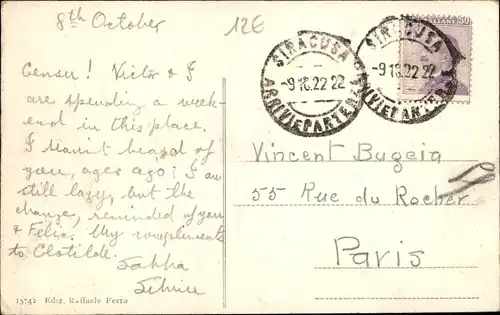 8th October
12E
Censu! Victor & I
are spending a week-
end in this place.
I haven't heard of
you, ages ago! I am
still lazy, but the
change, reminded of you
& Felic. My compliments
to Clotilde.
SIRACUSA
-9 10.22 22
ARRIVI E PARTENZE
SIRACUSA
-9 10.22 22
ARRIVI E PARTENZE
50
Vincent Bugeia
55 Rue du Rocher
Paris
15742 Ediz. Raffaele Ferro